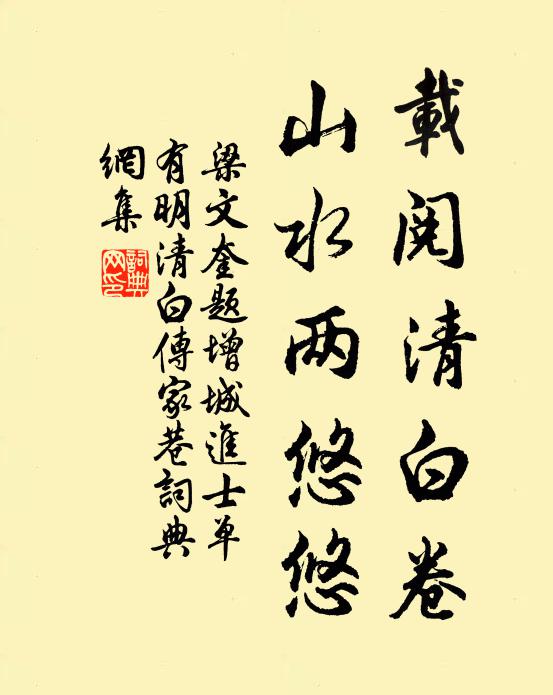 載閱清白卷
山水两悠悠
梁文奎題增城進士单
有明清白傳家巷詞典
網集
詞典
网印